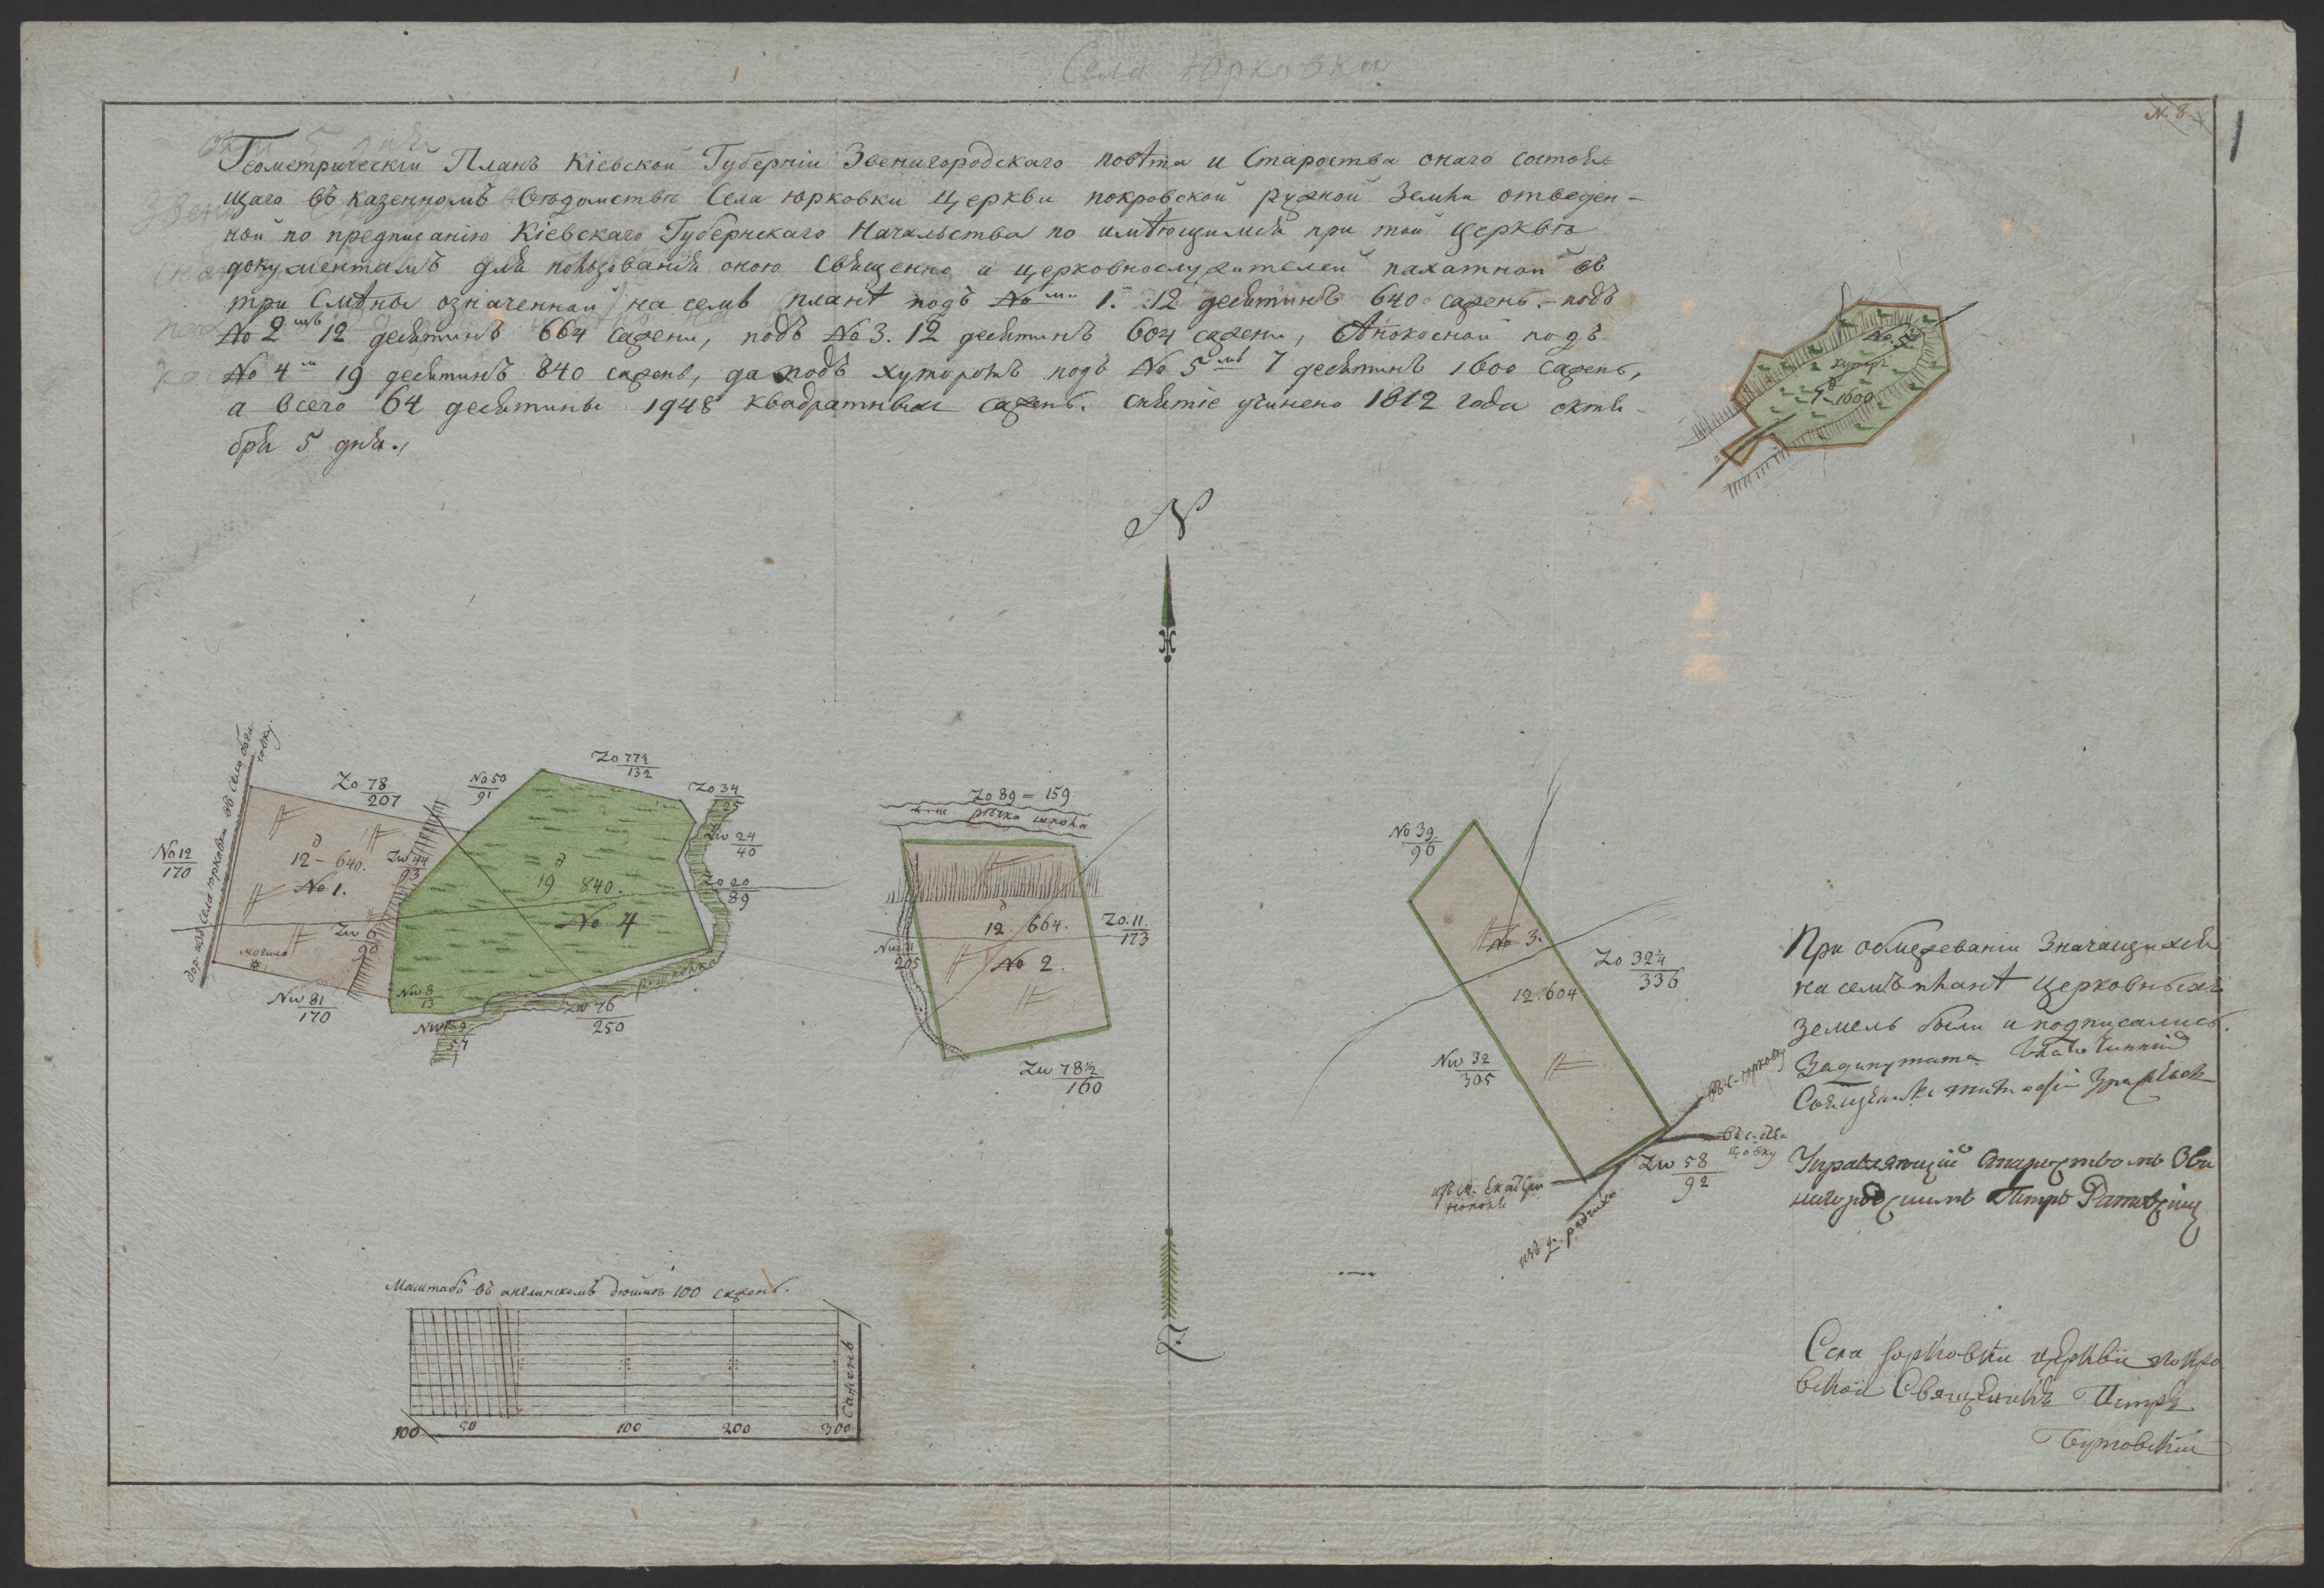 Села Юрковки
№ 8
1
Геометрическій Планъ Кіевской Губерніи Звенигородскаго повѣта и Староства онаго состоя-
щаго въ казенномъ вѣдомствѣ Села Юрковки церкви покровской ружной Земли отведен-
ной по предписанію Кіевскаго Губернскаго Начальства по имѣющимся при той церквѣ
документамъ для пользованія оною священно и церковнослужителей пахатной въ
три смѣны означенной на семъ планѣ подъ № 1. 12 десятинъ 640 сажень. подъ
№ 2 мъ 12 десятинъ 664 сажени, подъ № 3. 12 десятинъ 604 сажени, сѣнокосной подъ
№ 4 м 19 десятинъ 840 сажень, да подъ хуторомъ подъ № 5 мъ 7 десятинъ 1600 сажень,
а всего 64 десятины 1948 квадратныхъ сажень. снятіе учинено 1812 года октя-
бря 5 дня.
№ 5
хуторъ
д
7-1600
N
дор. изъ села юрковки въ село
Zo 78/207
No 12/170
д
12 - 640.
№ 1.
могила
Zw 44/93
Zw 6/90
Nw 81/170
No 50/91
Zo 77½/132
Zo 34/25
Zw 24/40
Zo 20/89
д
19 840.
№ 4
Nw 8/13
Zw 76/250
Zo 89 = 159
рѣчка шпола
д
12. 664.
№ 2.
Zo. 11./173
Nw 11/205
Zw 78½/160
No 39/96
№ 3.
12. 604
Zo 32¼/336
Nw 32/305
Zw 58/92
въ с. юрковку
изъ м. Екатери
нополя
При обмежеваніи Значащихся
на семъ планѣ церковныхъ
земель были и подписались.
За депутата благочинный
Управляющій Староствомъ Зве
нигородскимъ Петръ
Села Юрковки церкви покро
вской Священникъ Петръ
Бутовскій
Маштабъ въ англинскомъ дюймѣ 100 сажень.
100 50 100 200 300
Сажень
Z